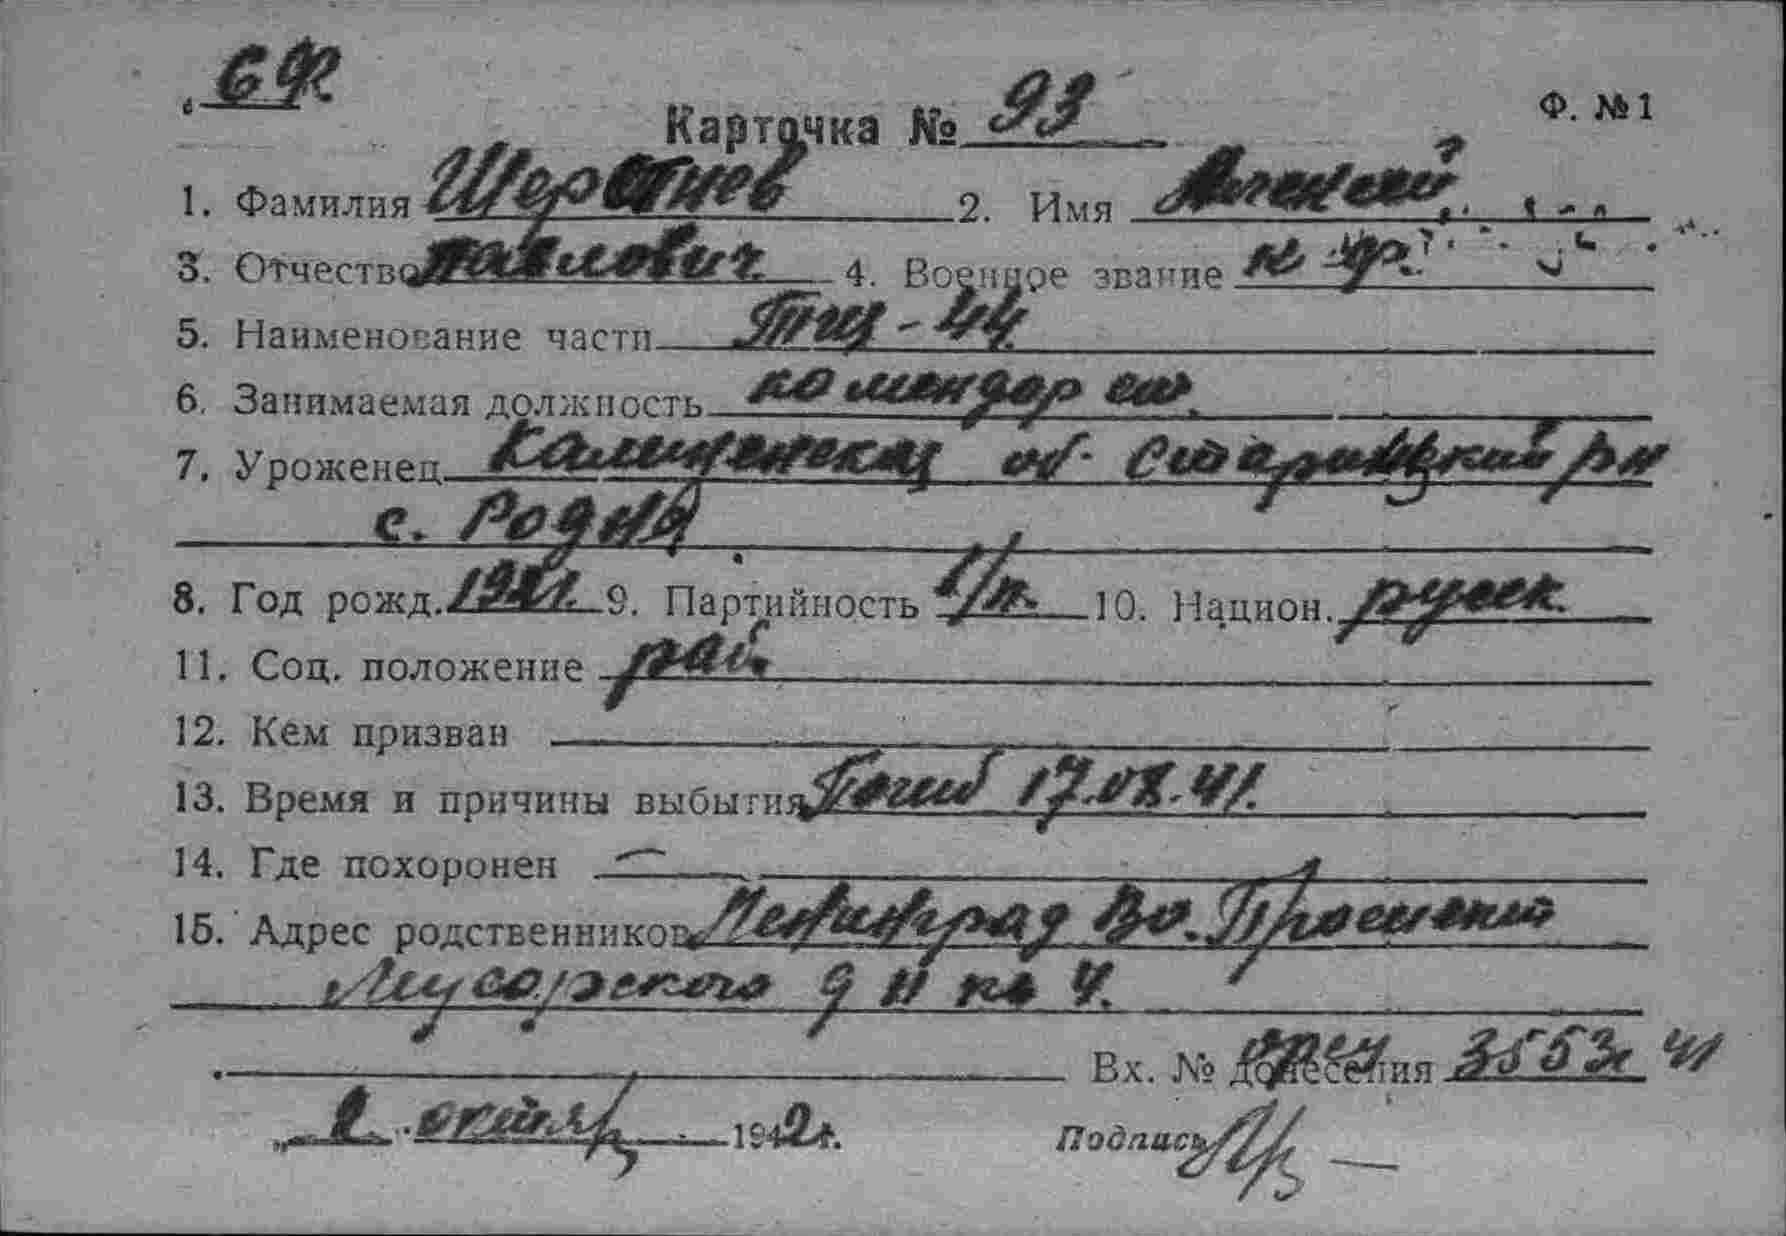 СФ
Карточка № 93
Ф. №1
1. Фамилия Шерстнев 2. Имя Алексей
3. Отчество Павлович 4. Военное звание кр.
5. Наименование части Тщ-44
6. Занимаемая должность комендор ст.
7. Уроженец Калининская об. Старицкий рн
с. Родня
8. Год рожд. 1921. 9. Партийность б/п. 10. Национ. русск.
11. Соц. положение раб.
12. Кем призван
13. Время и причины выбытия Погиб 17.08.41.
14. Где похоронен —
15. Адрес родственников Ленинград Во.
д 11 кв 4.
Вх. № донесения 3553 41
„ 2 октяб 1942г.
Подпись